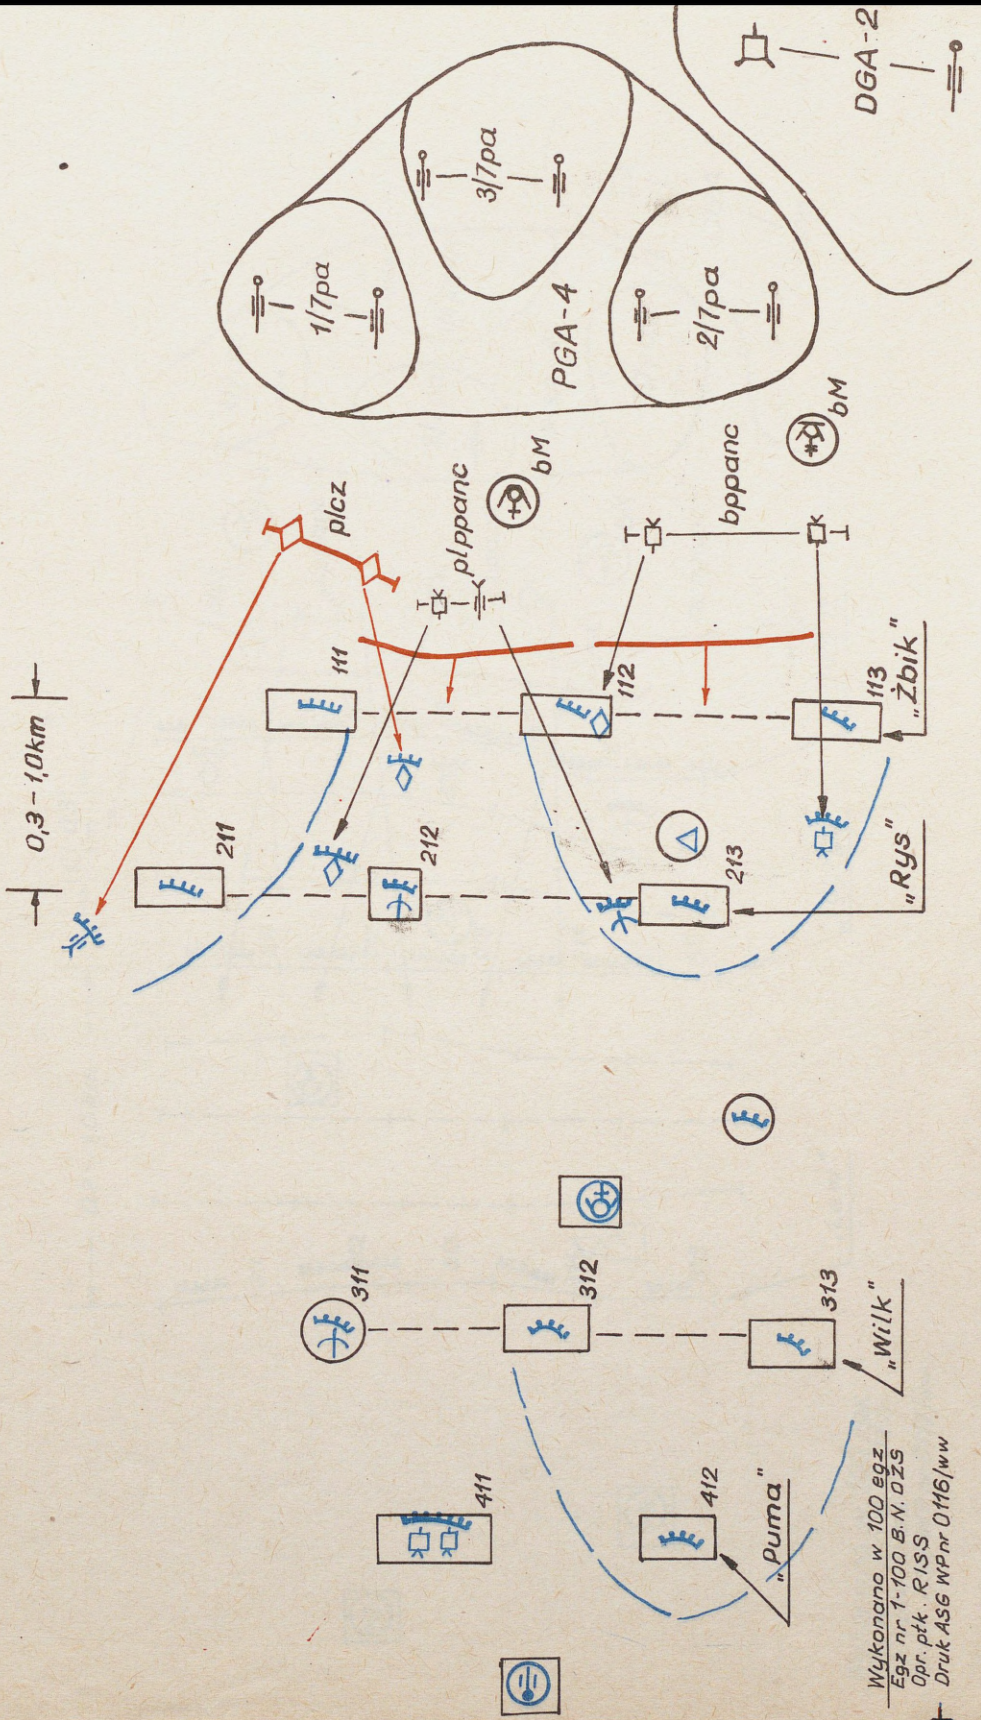 0,3 – 1,0km
DGA-2
3/7pa
1/7pa
2/7pa
PGA-4
bM
bM
plcz
plppanc
bppanc
111
112
113
„Żbik”
211
212
213
„Rys”
311
312
313
„Wilk”
411
412
„Puma”
Wykonano w 100 egz
Egz nr 1-100 B.N. OZS
Opr. płk. RISS
Druk ASG WP nr 0116/ww